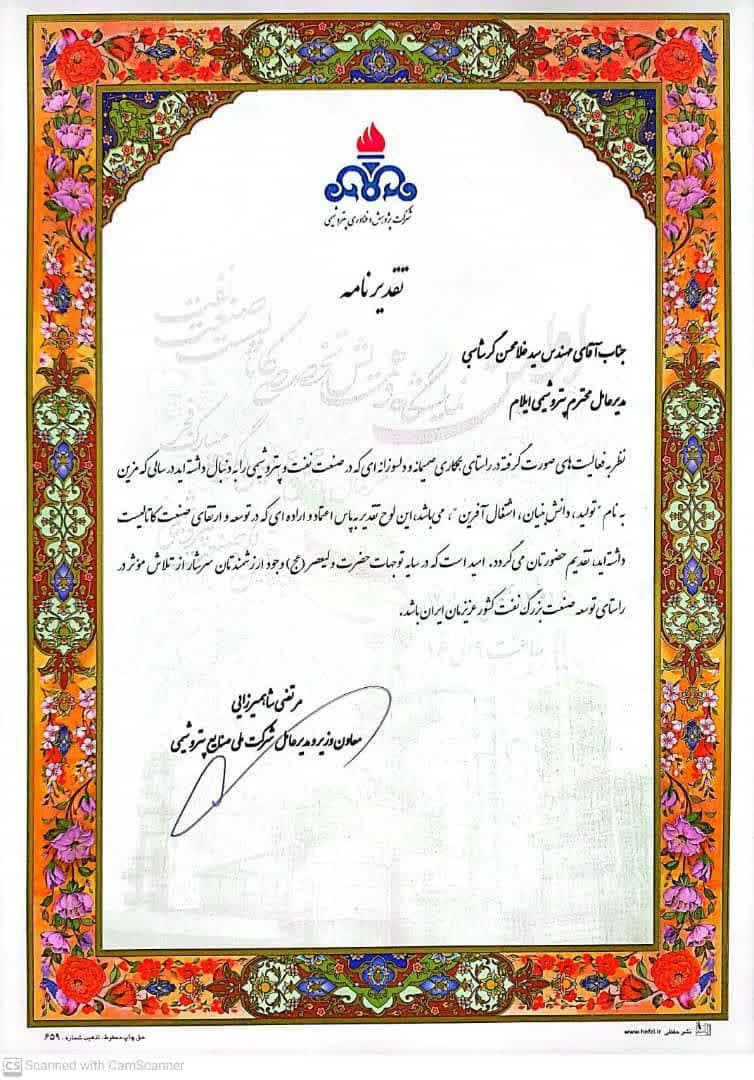 شرکت پژوهش و فناوری پتروشیمی
تقدیر نامه
جناب آقای مهندس سید غلامحسن گرشاسبی
مدیرعامل محترم پتروشیمی ایلام
نظر به فعالیت های صورت گرفته در راستای همکاری صمیمانه و دلسوزانه ای که در صنعت نفت و پتروشیمی را به دنبال داشته اید در سالی که مزین
به نام "تولید، دانش بنیان، اشتغال آفرین"، می باشد، این لوح تقدیر به پاس اعتماد و اراده ای که در توسعه و ارتقای صنعت کاتالیست
داشته اید، تقدیم حضورتان می گردد. امید است که در سایه توجهات حضرت ولیعصر (عج) وجود ارزشمندتان سرشار از تلاش مؤثر در
راستای توسعه صنعت بزرگ نفت کشور عزیزمان ایران باشد.
مرتضی شاهمیرزایی
معاون وزیر و مدیرعامل شرکت ملی صنایع پتروشیمی
حق چاپ محفوظ، تذهیب شماره: ۶۵۹
www.hefzi.ir نشر حفظی
CS Scanned with CamScanner